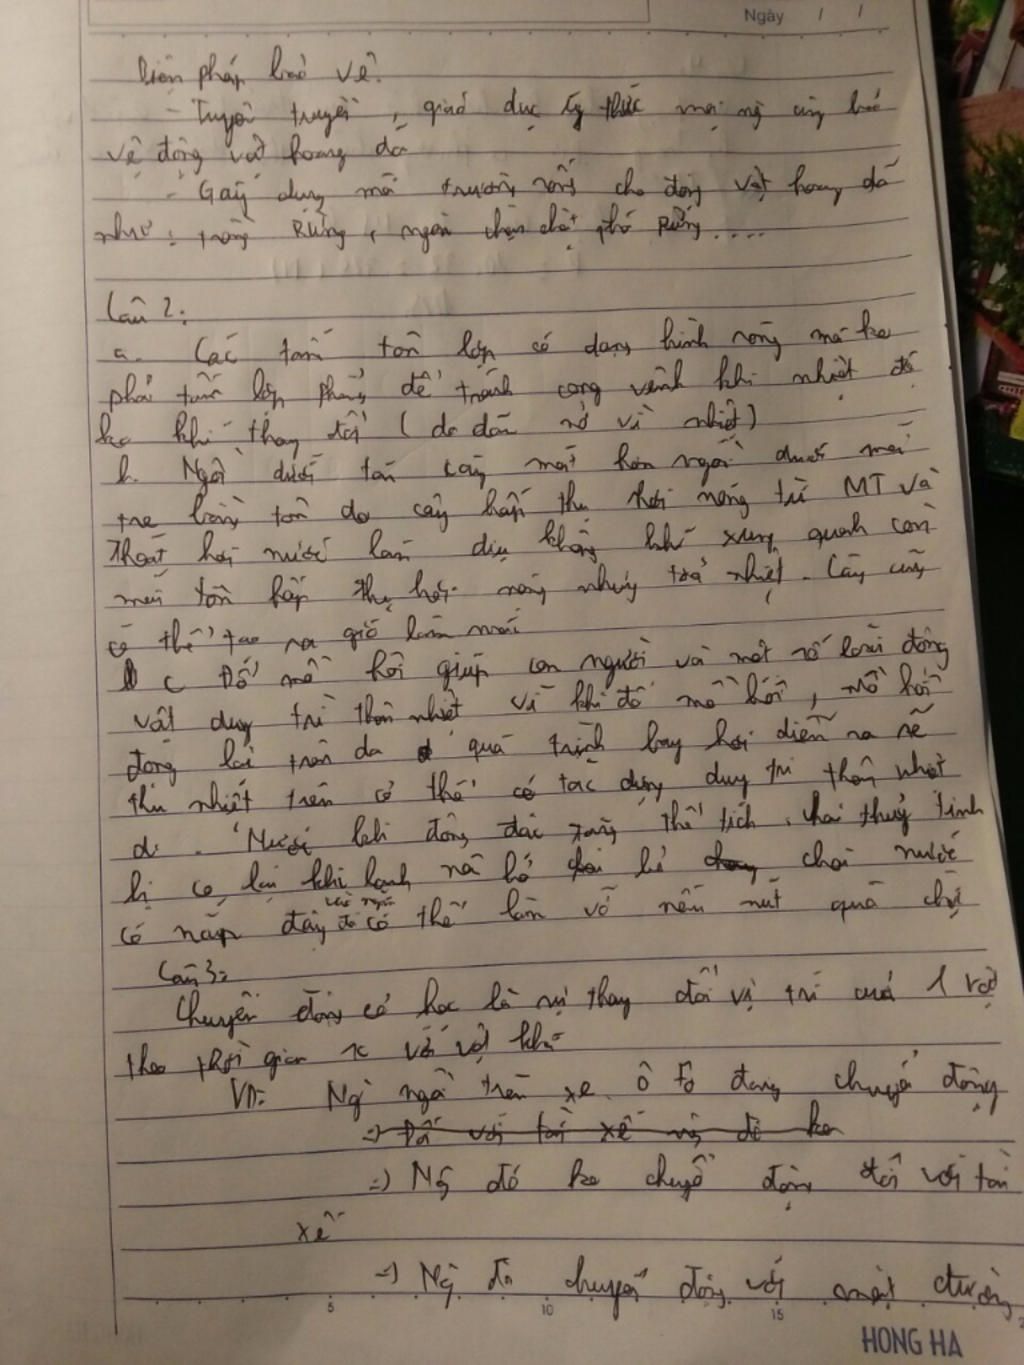 Ngày / /
biện pháp bảo vệ.
- Tuyên truyền, giáo dục ý thức mọi ng cùng bảo
vệ động vật hoang dã
- Gây dựng môi trường sống cho động vật hoang dã
như: trồng Rừng, ngăn chặn chặt phá Rừng....
Câu 2:
a. Các tấm tôn lợp có dạng hình sóng mà ko
phải tấm lợp phẳng để tránh cong vênh khi nhiệt độ
ko khí thay đổi (do dãn nở vì nhiệt)
b. Ngồi dưới tán cây mát hơn ngồi dưới mái
tre bằng tôn do cây hấp thụ hơi nóng từ MT và
thoát hơi nước làm dịu không khí xung quanh còn
mái tôn hấp thụ hơi nóng nhưng toả nhiệt. Cây cũng
có thể tạo ra gió làm mát
c Đổ mồ hôi giúp con người và một số loài động
vật duy trì thân nhiệt vì khi đổ mồ hôi, mồ hôi
đọng lại trên da quá trình bay hơi diễn ra sẽ
thu nhiệt trên cơ thể có tác dụng duy trì thân nhiệt
d. Nước khi đông đặc tăng thể tích, chai thuỷ tinh
bị co lại khi lạnh nên bỏ chai nước
có nắp đậy đó có thể làm vỡ nếu nút quá chặt
Câu 3:
Chuyển động cơ học là sự thay đổi vị trí của 1 vật
theo thời gian so với vật khác
VD: Ng ngồi trên xe ô tô đang chuyển động
=> Ng đó ko chuyển động đối với tài
xế
=> Ng đó chuyển động với mặt đường
5 10 15
HONG HA